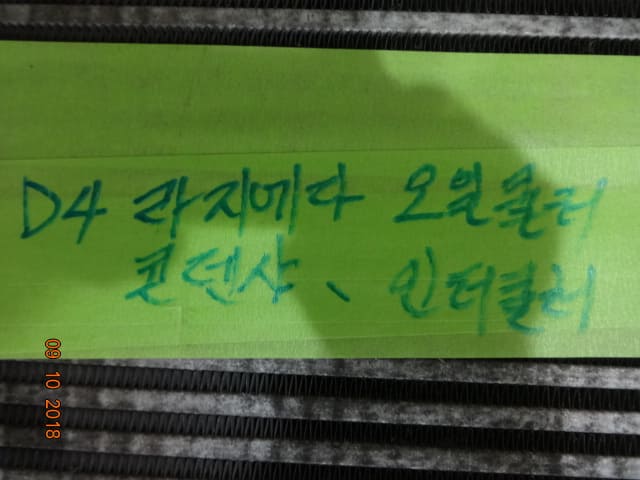 D4 라지에다 오일쿨러
콘덴샤、인터쿨러
09 10 2018